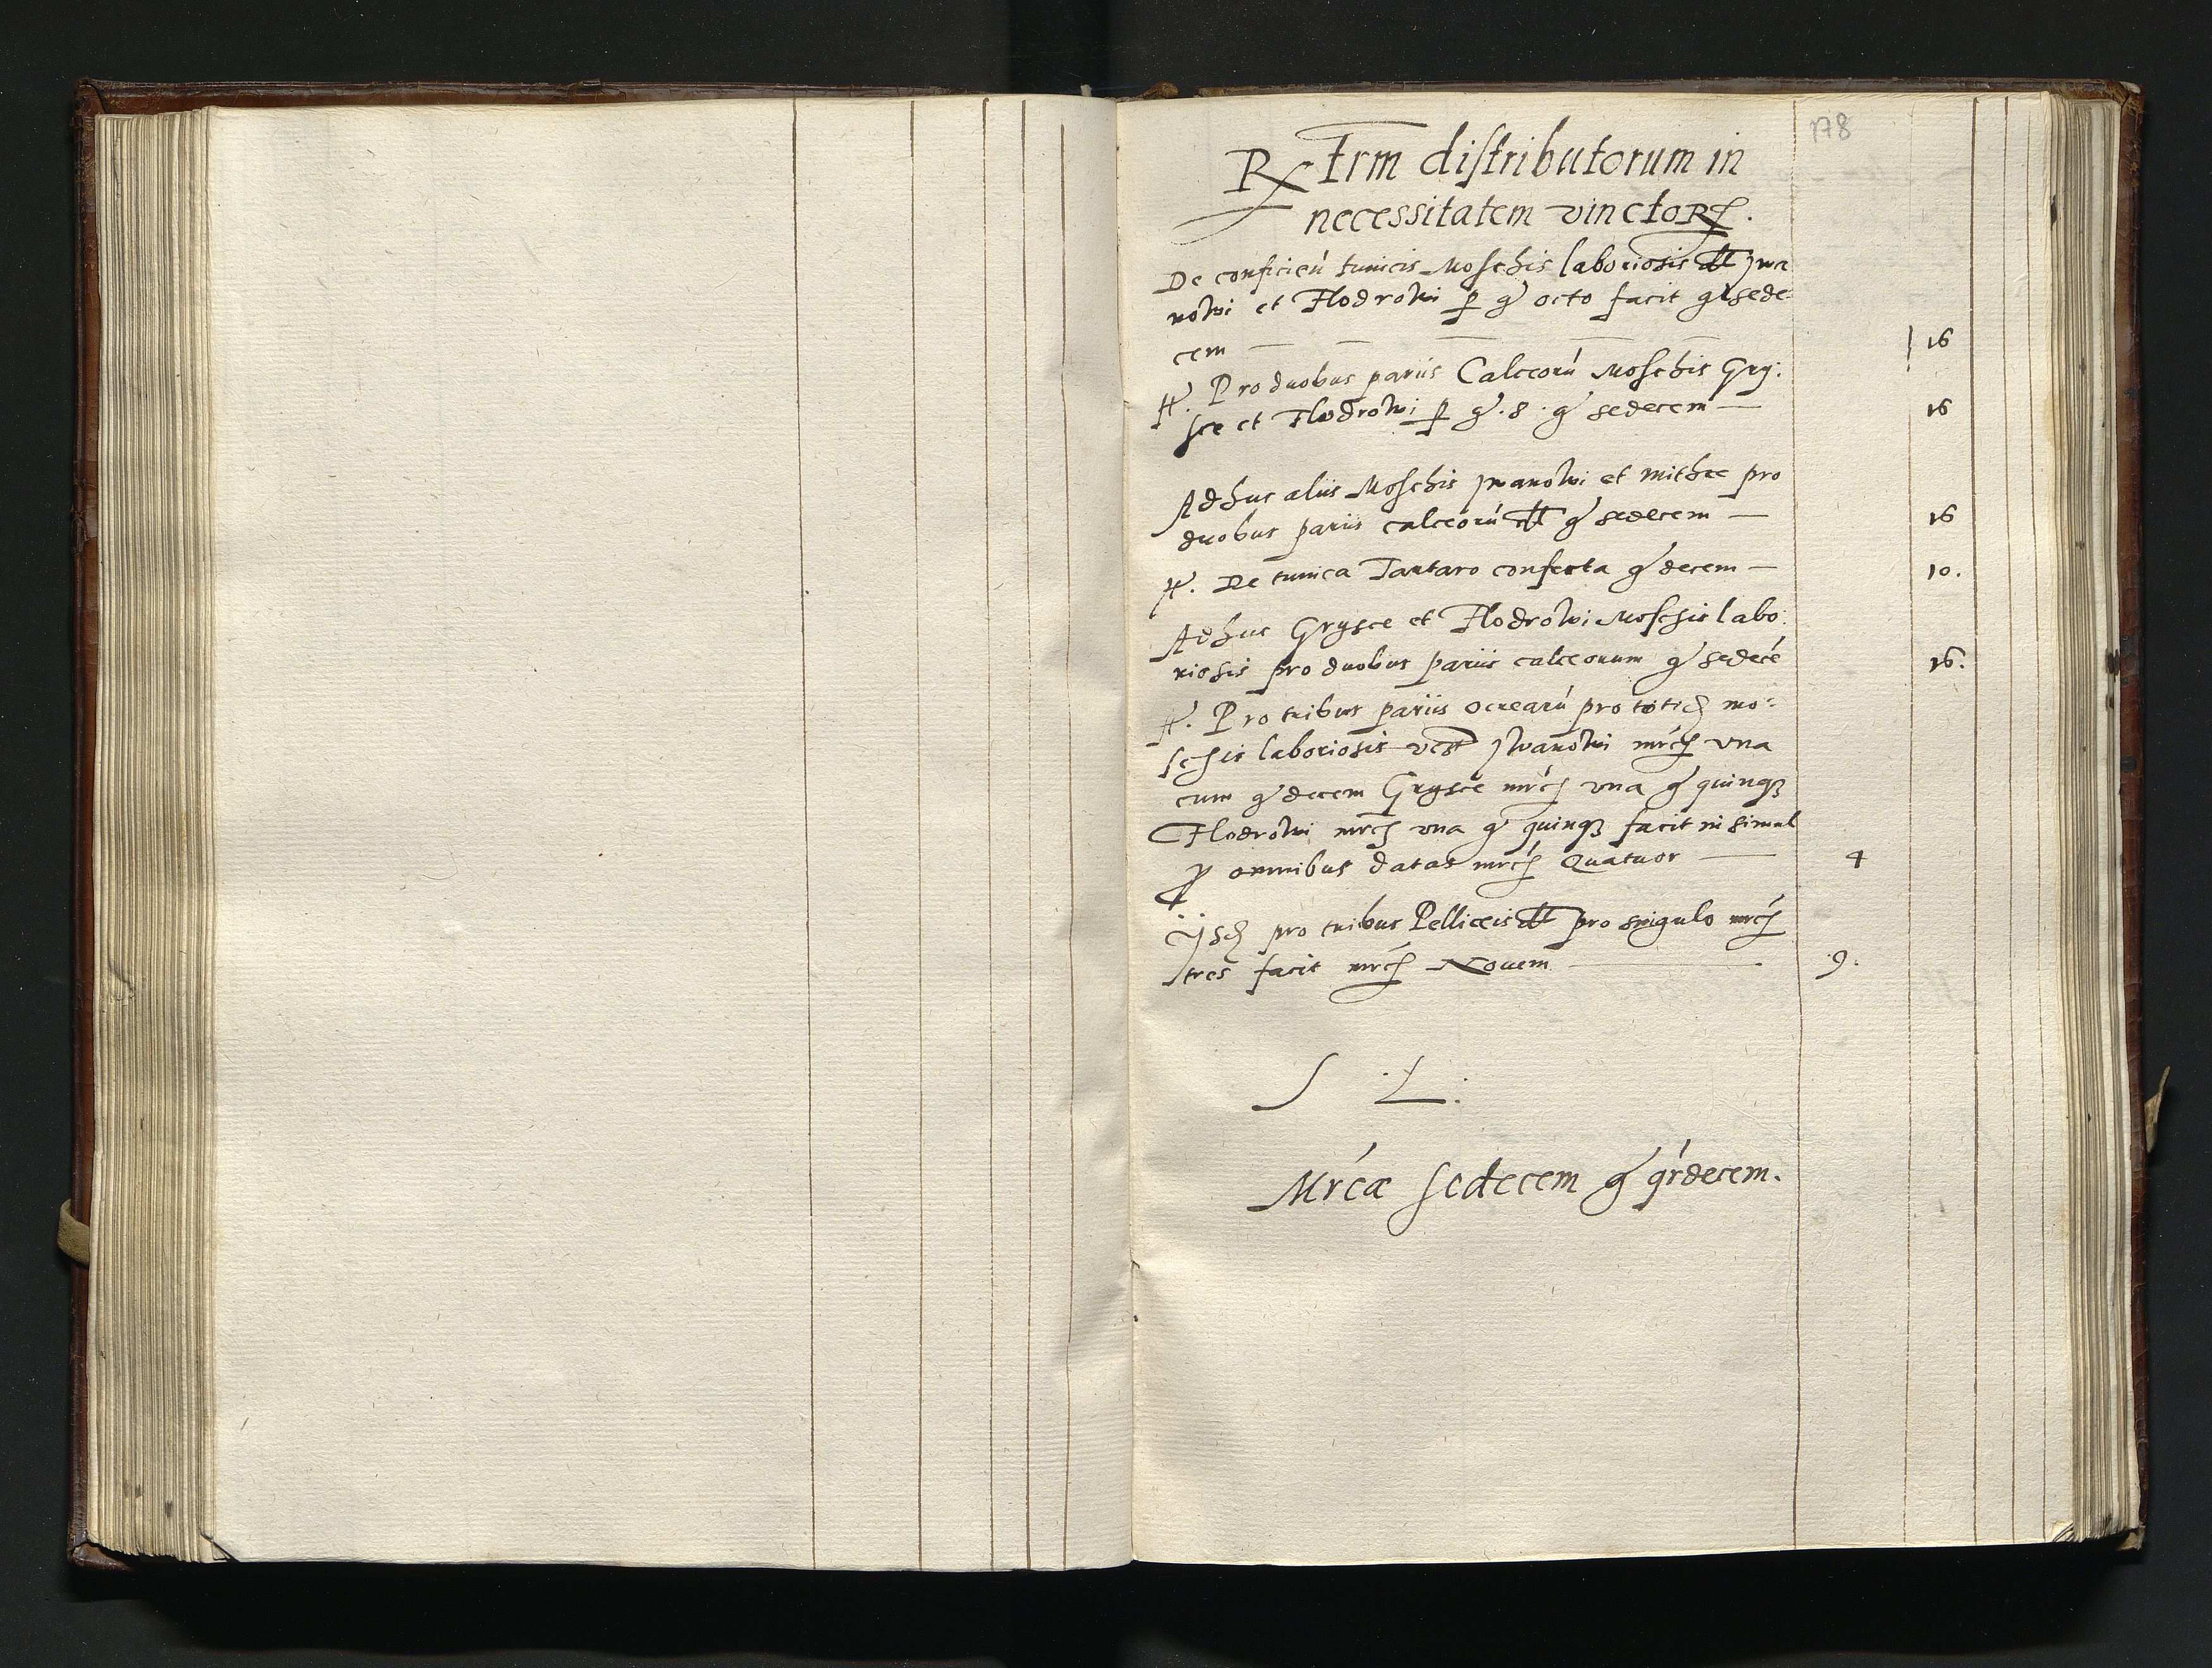 178
Rx Frm distributorum in
necessitatem vinctoꝝ.
De conficień tunicis Moschis laboriosis dt Jwa
nowi et Flodrowi ꝑ gͬ octo facit gͬ sede
cem — — — — | 16
It. Pro duobus pariis Calceorú Moschis Gry:
sce et Flodrowi ꝑ gͬ .8. gͬ sedecem — 16
Adhuc aliis Moschis Jwanowi et Mithce pro
duobus pariis calceorú dt gͬ sedecem — 16
It. De tunica Tartaro confecta gͬ decem — 10.
Adhuc Grysce et Flodrowi Moschis labo:
riosis pro duobus pariis calceorum gͬ sedecé 16.
It. Pro tribus pariis ocrearú pro totid mo:
schis laboriosis vcst Jwanowi mrć una
cum gͬ decem Grysce mrć una gͬ quinqꝫ
Flodrowi mrć una gͬ quinqꝫ facit insimul
ꝓ omnibus datas mrć Quatuor — 4
Ijsd pro tribus Pelliceis dt pro singulo mrć
tres facit mrć Nouem — 9.
S L:
Mrćæ sedecem gͬ gŕdecem.